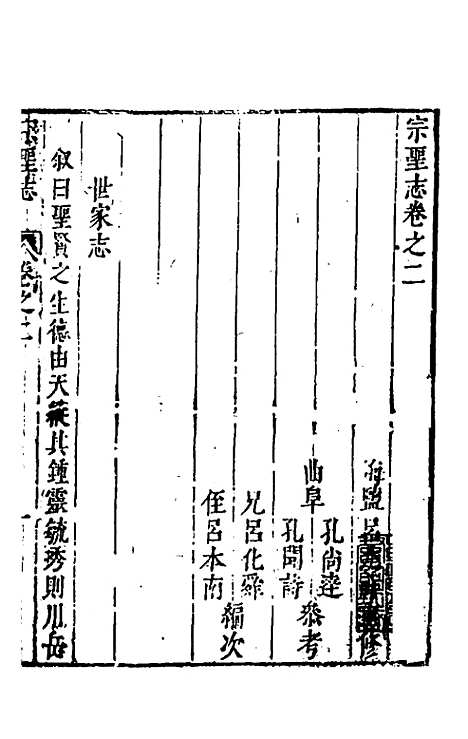 宗聖志卷之二
海鹽呂 修
曲阜 孔尚達
孔聞詩 叅考
兄呂化舜
侄呂本南 編次
世家志
叙曰聖賢之生德由天蓺其鍾靈毓秀則川岳
宗聖志 卷之二 一